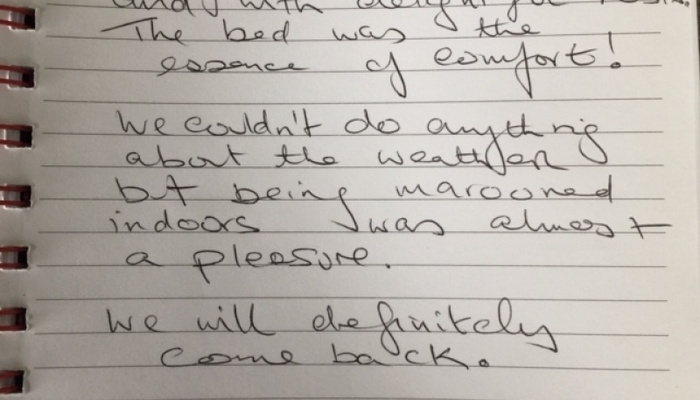 with
The bed was the
essence of comfort!
We couldn't do anything
about the weather
but being marooned
indoors was almost
a pleasure.
We will definitely
come back.